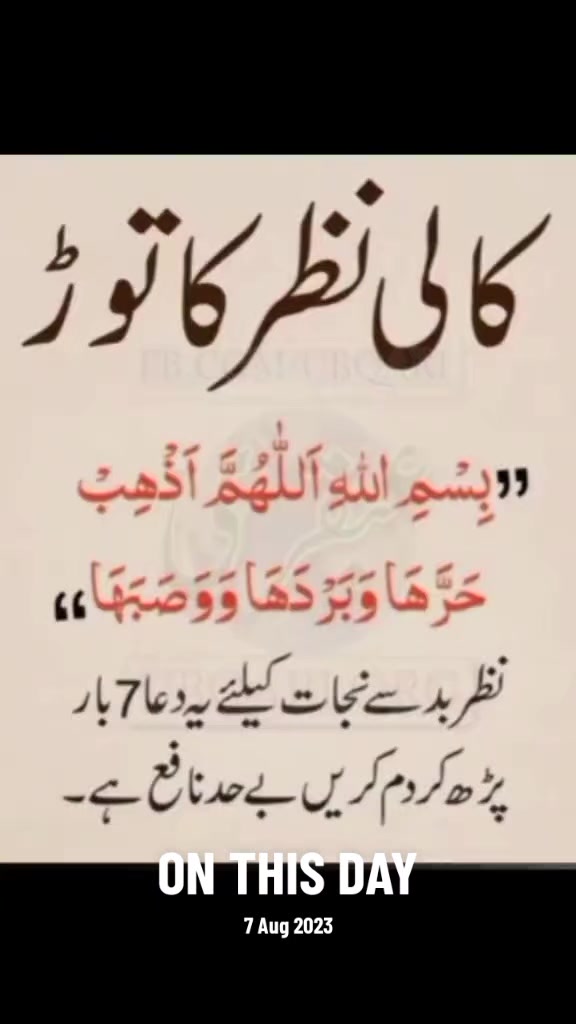 کالی نظر کا توڑ
”بِسْمِ اللهِ اَللّٰهُمَّ اَذْهِبْ
حَرَّهَا وَبَرْدَهَا وَوَصَبَهَا“
نظر بد سے نجات کیلئے یہ دعا 7 بار
پڑھ کر دم کریں بے حد نافع ہے۔
ON THIS DAY
7 Aug 2023